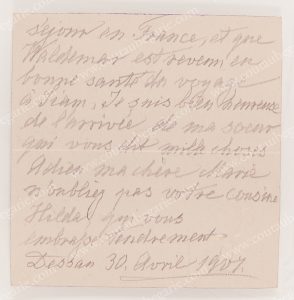 séjour en France, et que
Waldemar est revenu en
bonne santé du voyage
à Siam. Je suis bien heureuse
de l'arrivée de ma soeur
qui vous dit mille choses
Adieu ma chère Marie
n'oubliez pas votre cousine
Hilda qui vous
embrasse tendrement
Dessau 30. Avril 1907.